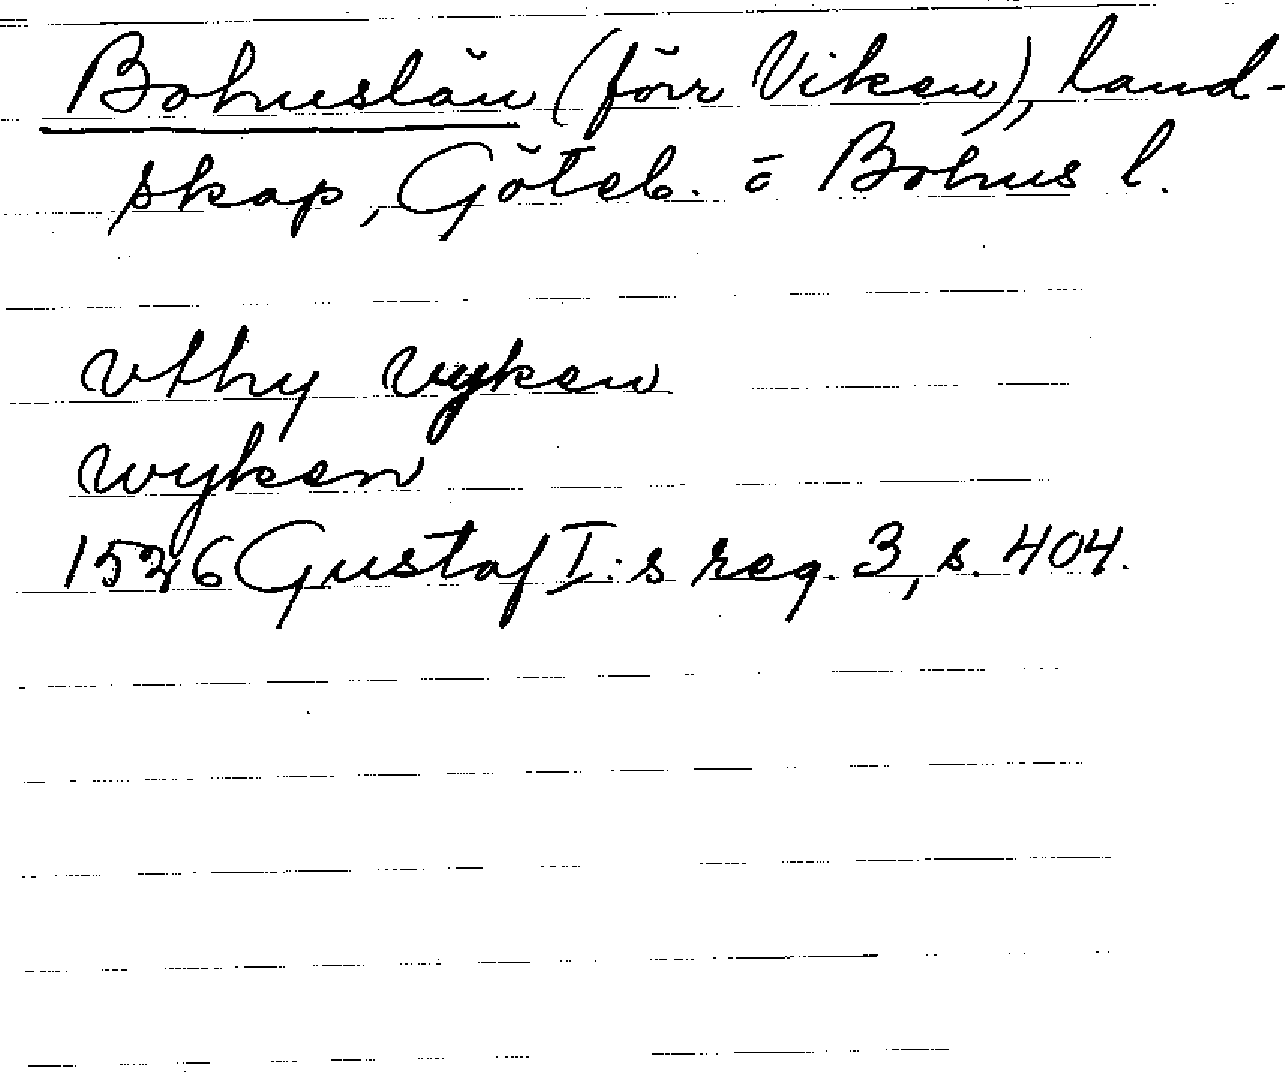 Bohuslän (förr Viken), land-
skap, Göteb. o Bohus l.
vthy vyken
wyken
1526 Gustaf I:s reg. 3, s. 404.